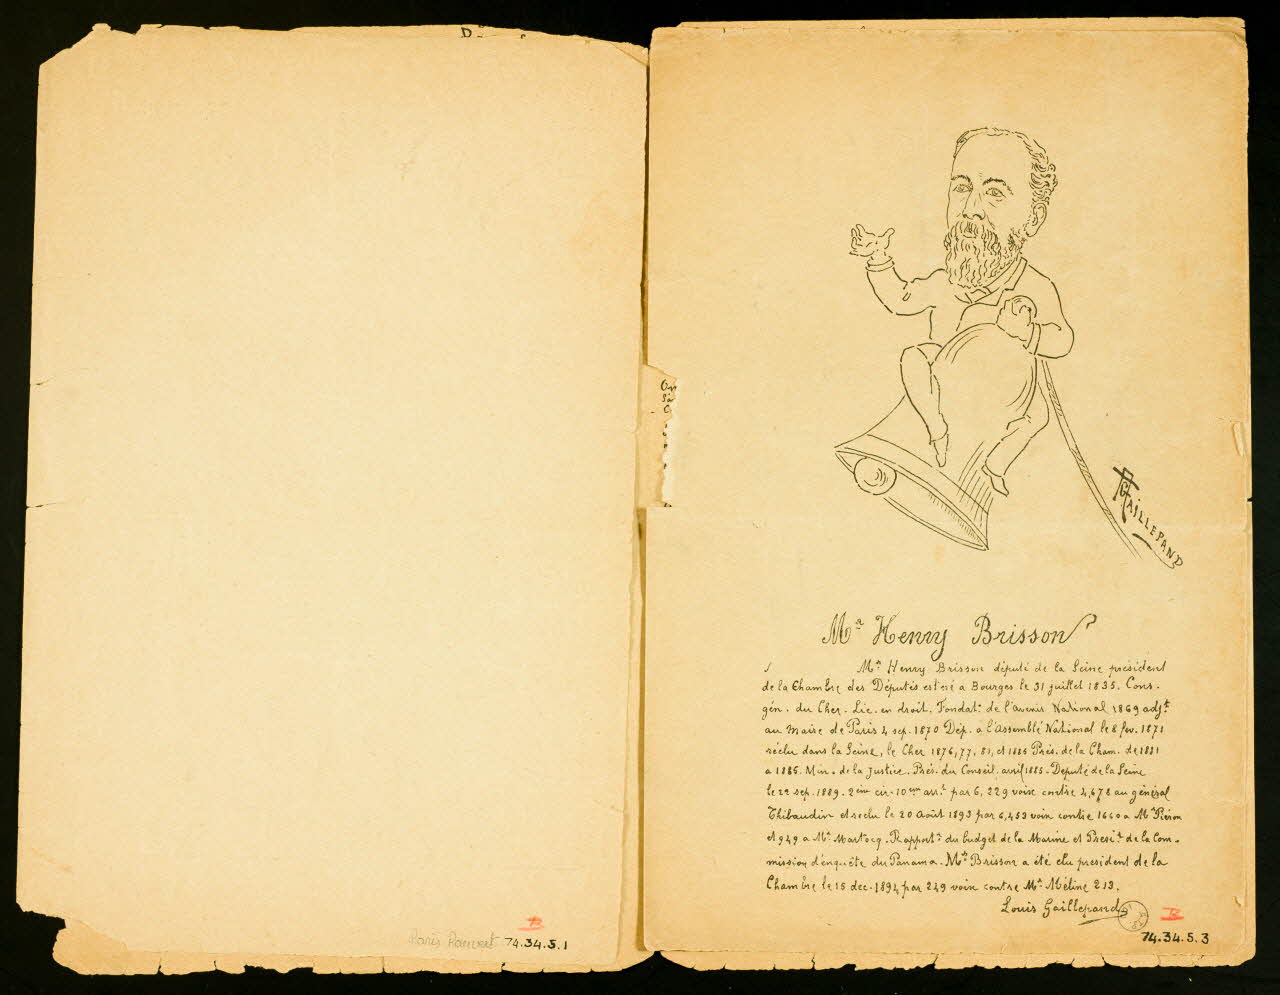 Paris Pauvert 74.34.5.1
GAILLEPAND
Mr Henry Brisson
Mr Henry Brisson député de la Seine président
de la Chambre des Députés est né a Bourges le 31 juillet 1835. Cons.
gén. du Cher. Lic. en droit. Fondatr de l'avenir National 1869 adjt
au Maire de Paris 4 sep. 1870 Dép. a l'Assemblé National le 8 fev. 1871
réélu dans la Seine, le Cher 1876, 77, 81, et 1885 Prés. de la Cham. de 1881
a 1885. Min. de la Justice. Prés. du Conseil. avril 1885. Deputé de la Seine
le 22 sep. 1889. 2èm cir. 10em arrt par 6,229 voix contre 4,678 au général
Thibaudin et reélu le 20 Août 1893 par 6,453 voix contre 1660 a Mr Péron
et 949 a Mr Martocq. Rapportr du budget de la Marine et Présit de la Com.
mission d'enquête du Panama. Mr Brisson a été élu president de la
Chambre le 15 dec. 1894 par 249 voix contre Mr Méline 213.
Louis Gaillepand
74.34.5.3